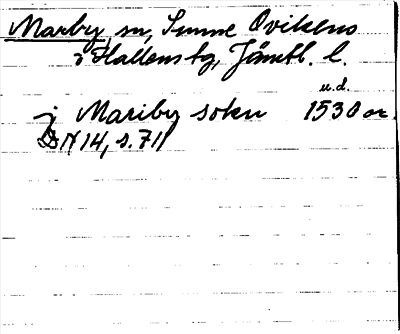 Marby sn, Sunne Ovikens
o Hallens tg, Jämtl. l.
u.d.
j Mariby sokn 1530 or.
DN 14, s. 711